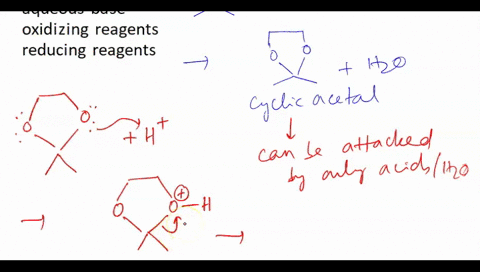 aqueous base
oxidizing reagents
reducing reagents
O O
+ H2O
cyclic acetal
can be attacked
by only acids/H2O
:O: :O:
+ H+
O O-H
+